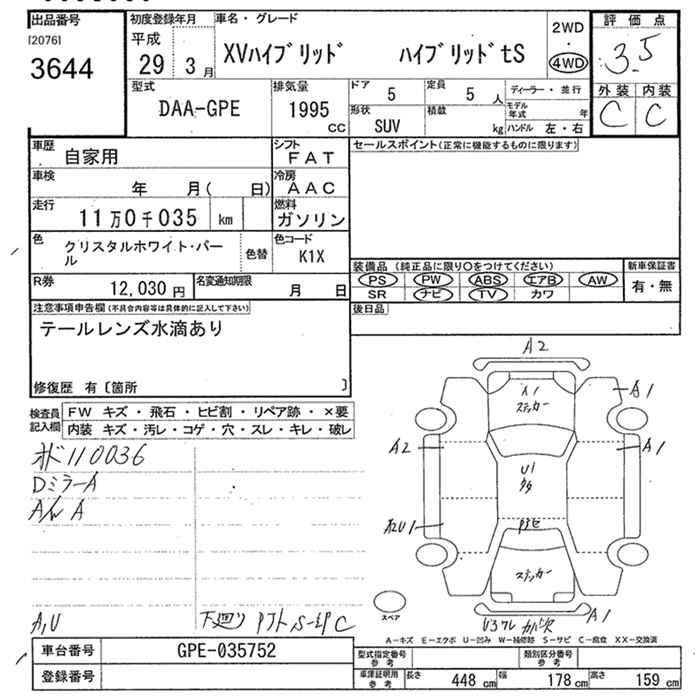 出品番号 初度登録年月 車名・グレード 2WD 評価点
[2076]
3644
平成
29 3月
XVハイブリッド ハイブリッドtS
・
4WD
3.5
型式 排気量 ドア 定員 ディーラー・並行 外装 内装
DAA-GPE 1995 CC
5 5人
形状 積載 モデル年式 年
SUV kg ハンドル 左・右
C C
車歴 自家用 シフト FAT セールスポイント(正常に機能するものに限ります)
車検 年 月( 日) 冷房 AAC
走行 11万0千035 km 燃料 ガソリン
色 クリスタルホワイト・パール 色替 色コード K1X
装備品 (純正品に限り○をつけてください) 新車保証書
PS PW ABS エアB AW 有・無
SR ナビ TV カワ
R券 12,030円 名変通知期限 月 日
後日品
注意事項申告欄(不具合内容等は具体的に記入して下さい)
テールレンズ水滴あり
修復歴 有〔箇所 〕
検査員記入欄 FW キズ・飛石・ヒビ割・リペア跡・×要
内装 キズ・汚レ・コゲ・穴・スレ・キレ・破レ
110036
Dミラ-A
A/W A
A,U
下廻り
A2
A1
ステッカー
A1
A2
A1
U1
A2U1
ステッカー
A1
スペア
A-キズ E-エクボ U-凹み W-補修跡 S-サビ C-腐食 XX-交換済
車台番号 GPE-035752
型式指定番号 参考 類別区分番号 参考
登録番号
車庫証明用 参考 長さ 448 cm 幅 178 cm 高さ 159 cm